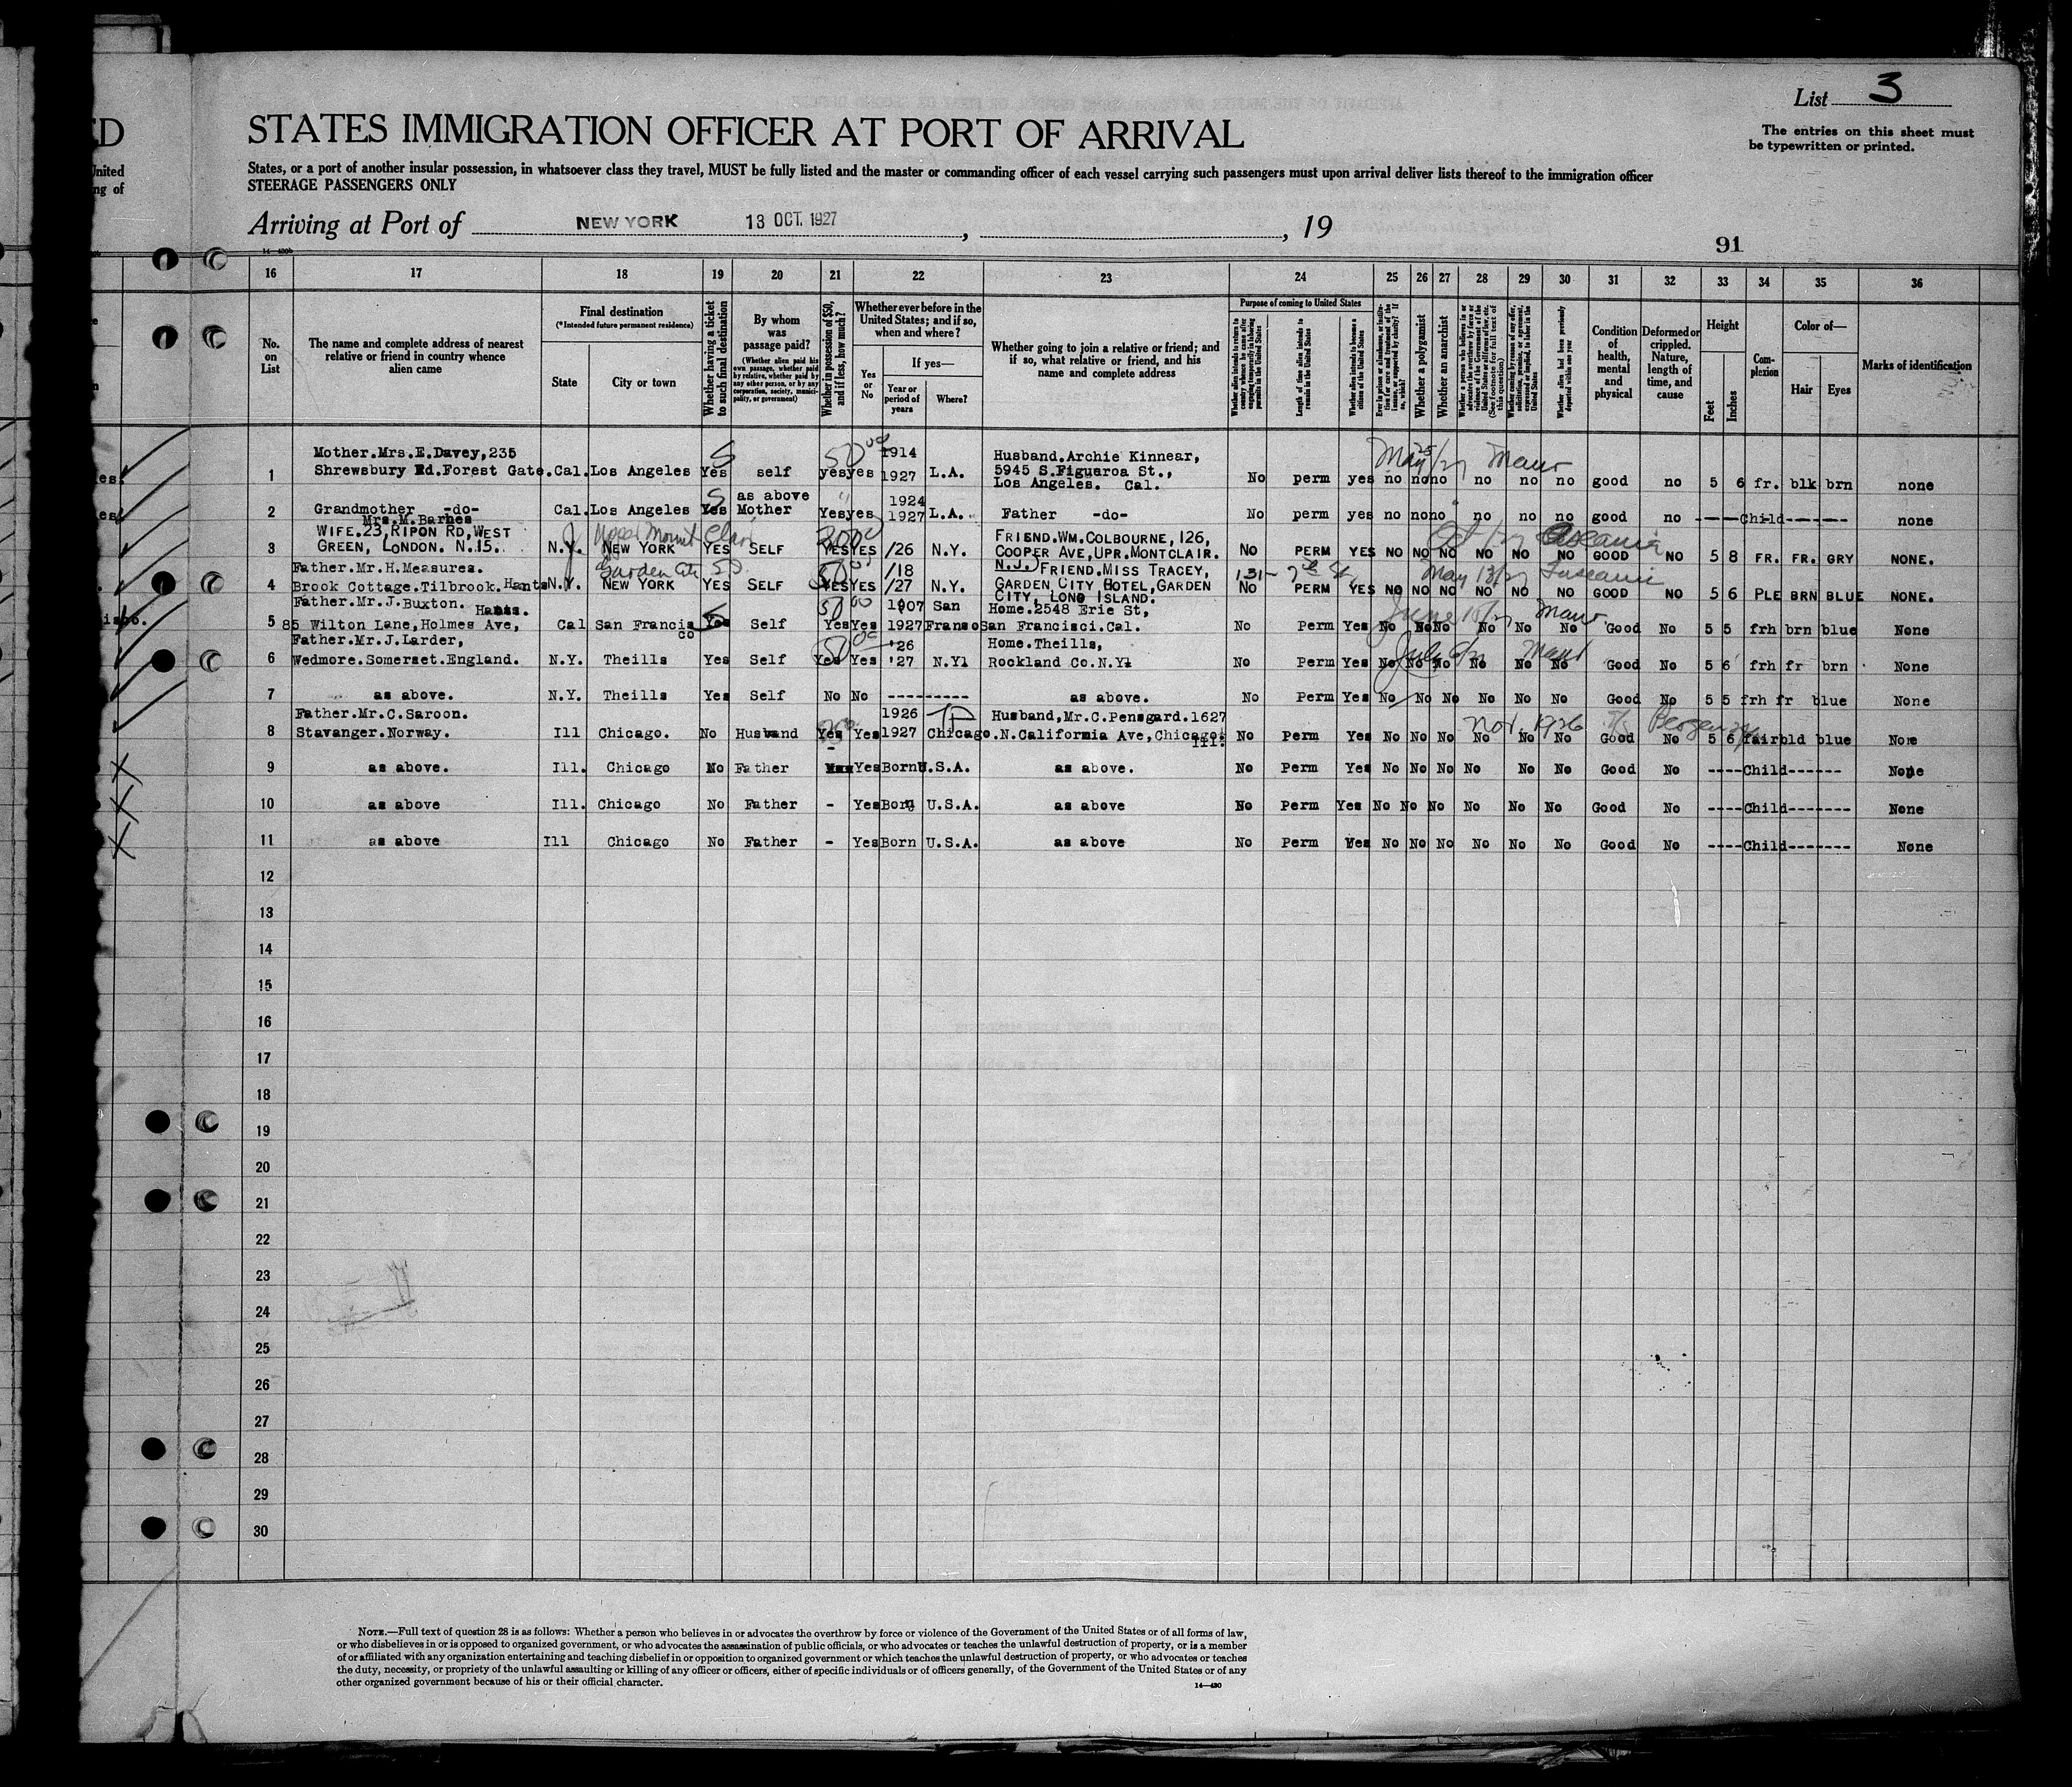 ED
United
ng of
List 3
The entries on this sheet must
be typewritten or printed.
STATES IMMIGRATION OFFICER AT PORT OF ARRIVAL
States, or a port of another insular possession, in whatsoever class they travel, MUST be fully listed and the master or commanding officer of each vessel carrying such passengers must upon arrival deliver lists thereof to the immigration officer
STEERAGE PASSENGERS ONLY
Arriving at Port of NEW YORK 13 OCT. 1927 , , 19
91
16 17 18 19 20 21 22 23 24 25 26 27 28 29 30 31 32 33 34 35 36
No. on List
The name and complete address of nearest relative or friend in country whence alien came
Final destination
(*Intended future permanent residence)
State
City or town
Whether having a ticket to such final destination
By whom was passage paid?
(Whether alien paid his own passage, whether paid by relative, whether paid by any other person, or by any corporation, society, municipality, or government)
Whether in possession of $50, and if less, how much?
Whether ever before in the United States; and if so, when and where?
Yes or No
If yes—
Year or period of years
Where?
Whether going to join a relative or friend; and if so, what relative or friend, and his name and complete address
Purpose of coming to United States
Length of time alien intends to remain in the United States
Whether alien intends to become a citizen of the United States
Whether a polygamist
Whether an anarchist
Whether alien had been previously deported within one year
Condition of health, mental and physical
Deformed or crippled. Nature, length of time, and cause
Height
Feet
Inches
Complexion
Color of—
Hair
Eyes
Marks of identification
Mother.Mrs.E.Davey,235 50 00 1914 Husband.Archie Kinnear,
1 Shrewsbury Rd.Forest Gate. Cal. Los Angeles Yes self yes yes 1927 L.A. 5945 S.Figueroa St., No perm yes no no no no no no good no 5 6 fr. blk brn none
Los Angeles. Cal.
as above 1924
2 Grandmother -do- Cal. Los Angeles Yes Mother Yes yes 1927 L.A. Father -do- No perm yes no no no no no no good no ----Child------ none
Mrs.M.Barnes
WIFE.23,RIPON RD,WEST FRIEND.WM.COLBOURNE,126,
3 GREEN, LONDON. N.15. N.Y. NEW YORK YES SELF YES YES /26 N.Y. COOPER AVE,UPR.MONTCLAIR. NO PERM YES NO NO NO NO NO NO GOOD NO 5 8 FR. FR. GRY NONE.
Father.Mr.H.Measures. Garden City /18 N.J. FRIEND.MISS TRACEY,
4 Brook Cottage.Tilbrook.Hants N.Y. NEW YORK YES SELF YES YES /27 N.Y. GARDEN CITY HOTEL,GARDEN NO PERM YES NO NO NO NO NO NO GOOD NO 5 6 PLE BRN BLUE NONE.
CITY, LONG ISLAND.
Father.Mr.J.Buxton. Hants. 50 00 1907 San Home.2548 Erie St, June 15/27 Maur
5 85 Wilton Lane,Holmes Ave, Cal San Francis co Yes Self Yes Yes 1927 Franso San Francisci.Cal. No Perm Yes No No No No No No Good No 5 5 frh brn blue None
Father.Mr.J.Larder, '26 Home.Theills,
6 Wedmore.Somerset.England. N.Y. Theills Yes Self Yes Yes '27 N.Y. Rockland Co.N.Y. No Perm Yes No No No No No No Good No 5 6 frh fr brn None
7 as above. N.Y. Theills Yes Self No No --------- as above. No Perm Yes No No No No No No Good No 5 5 frh fr blue None
Father.Mr.C.Saroon. 1926 Husband,Mr.C.Pensgard.1627 Nov. 1926
8 Stavanger.Norway. Ill Chicago. No Husband Yes Yes 1927 Chicago .N.California Ave,Chicago. Ill. No Perm Yes No No No No No No Good No 5 6 fair bld blue None
9 as above. Ill. Chicago No Father Yes Born U.S.A. as above. No Perm Yes No No No No No No Good No ----Child------ None
10 as above Ill. Chicago No Father - Yes Born U.S.A. as above No Perm Yes No No No No No No Good No ----Child------- None
11 as above Ill Chicago No Father - Yes Born U.S.A. as above No Perm Yes No No No No No No Good No ----Child------- None
12
13
14
15
16
17
18
19
20
21
22
23
24
25
26
27
28
29
30
NOTE.—Full text of question 28 is as follows: Whether a person who believes in or advocates the overthrow by force or violence of the Government of the United States or of all forms of law,
or who disbelieves in or is opposed to organized government, or who advocates the assassination of public officials, or who advocates or teaches the unlawful destruction of property, or is a member
of or affiliated with any organization entertaining and teaching disbelief in or opposition to organized government or which teaches the unlawful destruction of property, or who advocates or teaches
the duty, necessity, or propriety of the unlawful assaulting or killing of any officer or officers, either of specific individuals or of officers generally, of the Government of the United States or of any
other organized government because of his or their official character.
14—430